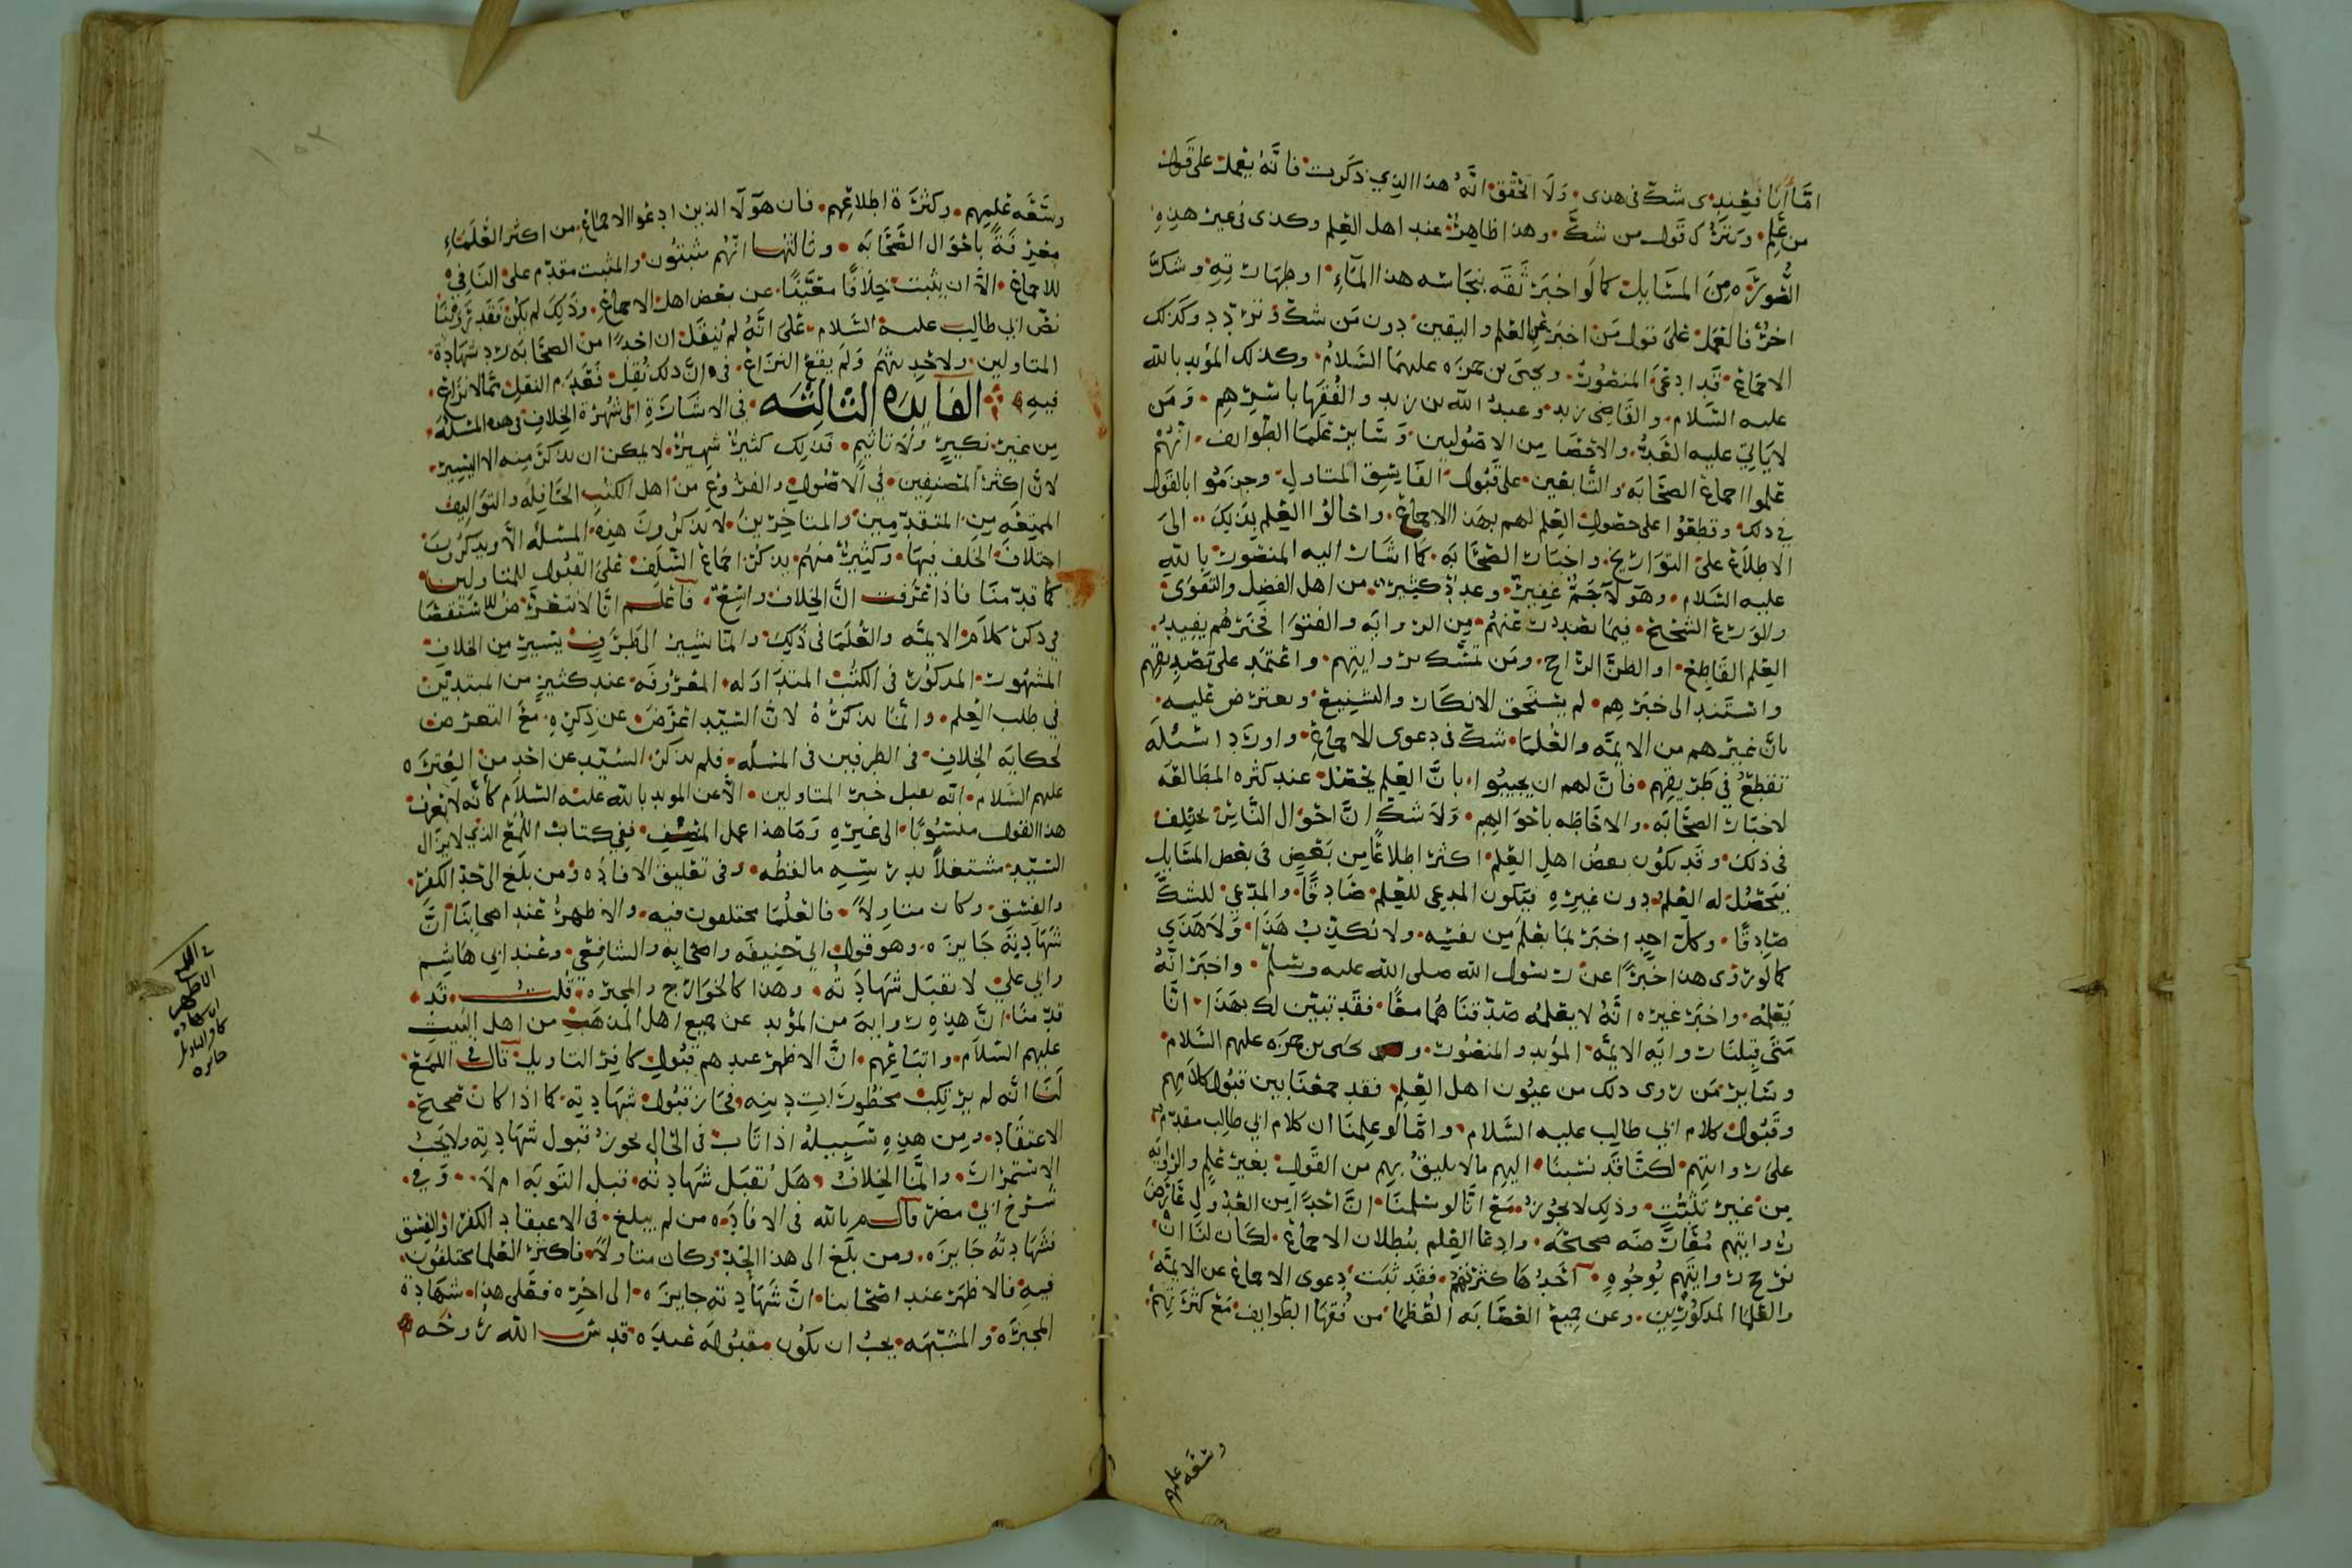 امّا أنا فعندي شكّ في هذى ولا اتحقق انّه هذا الذي ذكرت فانّه يعمل على قول
من علم ويترك قول من شكّ وهذا ظاهر عند اهل العلم وكذى في غير هذه
الصورة من المسايل كما لو اخبر ثقه بنجاسه هذا المآء او طهارته وشكّ
اخر فالعمل على قول من اخبر عن العلم واليقين دون من شكّ وتردّد وكذلك
الاجماع قد ادعى المنصور ويحيى بن حمزه عليهما السلام وكذلك المؤيد بالله
عليه السلام والقاضي زيد وعبد الله بن زيد والفقها باسرهم ومن
لا ياتي عليه العدّ والاحصا من الاصوليين وساير علما الطوايف انهم
علموا اجماع الصحابه والتابعين على قبول الفاسق المتاول وجزموا بالقول
في ذلك وقطعوا على حصول العلم لهم بهذا الاجماع واحالوا العلم بذلك الى
الاطلاع على التواريخ واخبار الصحابه كما اشار اليه المنصور بالله
عليه السلام وهولآ جمّ غفير وعدد كثير من اهل الفضل والتقوى
والورع الشحيح فيما يصدر عنهم من الروايه والفتوا فخبرهم يفيد
العلم القاطع او الظن الراجح ومن تمسّك بروايتهم واعتمد على تصديقهم
واستند الى خبرهم لم يستحق الانكار والتشنيع ويعترض عليه
بانّ غيرهم من الايمّه والعلما شكّ في دعوى الاجماع واورد اسئله
تقطع في طريقهم فانّ لهم ان يجيبوا بانّ العلم يحصل عند كثره المطالعه
لاخبار الصحابه والاحاطه باحوالهم ولا شكّ انّ احوال الناس تختلف
في ذلك وقد يكون بعض اهل العلم اكثر اطلاعًا من بعض في بعض المسايل
فيحصل له العلم دون غيره فيكون المدعي للعلم صادقًا والمدّعي للشكّ
صادقًا وكلّ احد اخبر بما يعلم من نفسه ولا نكذّب هذا ولا هذى
كما لو روى هذا خبرًا عن رسول الله صلى الله عليه وسلم واخبر انّه
يعلمه واخبر غيره انّه لا يعلمه صدّقناهما معًا فقد تبيّن لك بهذا انّا
متى قبلنا روايه الايمّه المؤيد والمنصور ويحيى بن حمزه عليهم السلام
وساير من روى ذلك من عيون اهل العلم فقد جمعنا بين قبول كلامهم
وقبول كلام ابي طالب عليه السلام وامّا لو علمنا ان كلام ابي طالب مقدّم
على روايتهم لكنّا قد نسبنا اليهم ما لا يليق بهم من القول بغير علم والروايه
من غير تثبّت وذلك لا يجوز مع انّا لو سلمنا انّ احدًا من العدول عارض
روايتهم معارضه صحيحه وادعا العلم ببطلان الاجماع لكان لنا ان
نرجح روايتهم بوجوه احدها كثرتهم فقد ثبت دعوى الاجماع عن الايمّه
والعلما المذكورين وعن جميع العصابه العظما من فقها الطوايف مع كثرتهم
وسعه علمهم
وسعه علمهم وكثرة اطلاعهم فان هولا الذين ادعوا الاجماع من اكثر العلماء
معرفةً باحوال الصحابه وثالثها انّهم مثبتون والمثبت مقدّم على النافي
للاجماع الا ان يثبت خلافًا معيّنًا عن بعض اهل الاجماع وذلك لم يكن فقد روينا
نصّ ابي طالب عليه السلام على انّه لم ينقل ان احدًا من الصحابه رد شهادة
المتاولين ولا حديثهم ولم يقع النزاع في انّ ذلك نقل فقدم النقل بما لا نزاع
فيه الفايده الثالثه في الاشارة الى شهرة الخلاف في هذه المسئله
من غير نكير ولا تاثيم فذلك كثير شهير لا يمكن ان يذكر منه الا اليسير
لانّ اكثر المصنفين في الاصول والفروع من اهل الكتب الحافله والتواليف
الممتعه من المتقدّمين والمتاخرين لا يذكرون هذه المسئله الاّ ويذكرون
اختلاف الخلف فيها وكثير منهم يذكر اجماع السلف على القبول للمتاولين
كما قدّمنا فاذا عرفت انّ الخلاف واسع فاعلم انّا لا نتعرّض للاستقصا
في ذكر كلام الايمّه والعلما في ذلك وانما نشير الى طرف يسير من الخلاف
المشهور المذكور في الكتب المتداوله المعروفه عند كثير من المبتدين
في طلب العلم وانما نذكره لانّ السيّد اعرض عن ذكره مع التعرض
لحكايه الخلاف في الطرفين في المسئله فلم يذكر السيّد عن احد من العتره
عليهم السلام انّه يقبل خبر المتاولين الاّ عن المويد بالله عليه السلام كانّه لا يعرف
هذا القول منسوبًا الى غيره وما هذا عمل المنصف ففي كتاب اللمع الذي لا يزال
السيّد مشتغلاً بدرسه ما لفظه وفي تعليق الافاده ومن بلغ الى حدّ الكفر
والفسق وكان متاولاً فالعلما مختلفون فيه والاظهر عند اصحابنا انّ
شهادته جايزه وهو قول ابي حنيفه واصحابه والشافعي وعند ابي هاشم
وابي علي لا تقبل شهادته وهذا كالخوارج والمجبره قلت قد
قدّمنا انّ هذه روايه من المؤيد عن جميع اهل المذهب من اهل البيت
عليهم السلام واتباعهم انّ الاظهر عندهم قبول كافر التاويل قال في اللمع
لنا انّه لم يرتكب محظورات دينه فجاز قبول شهادته كما اذا كان صحيح
الاعتقاد ومن هذه سبيله اذا تاب في الحال يجوز قبول شهادته ولا يجب
الاستمرار وانّما الخلاف هل تقبل شهادته قبل التوبه ام لا وفي
شرح ابي مضر قال م بالله في الافاده من لم يبلغ في الاعتقاد الكفر او الفسق
فشهادته جايزه ومن بلغ الى هذا الحدّ وكان متاولاً فاكثر العلما مختلفون
فيه فالاظهر عند اصحابنا انّ شهادته جايزه الى اخره فعلى هذا شهادة
المجبره والمشبّهه يجب ان تكون مقبوله عنده قدس الله روحه
الاظهر
ان شهادة
كافر التاويل
جايزه